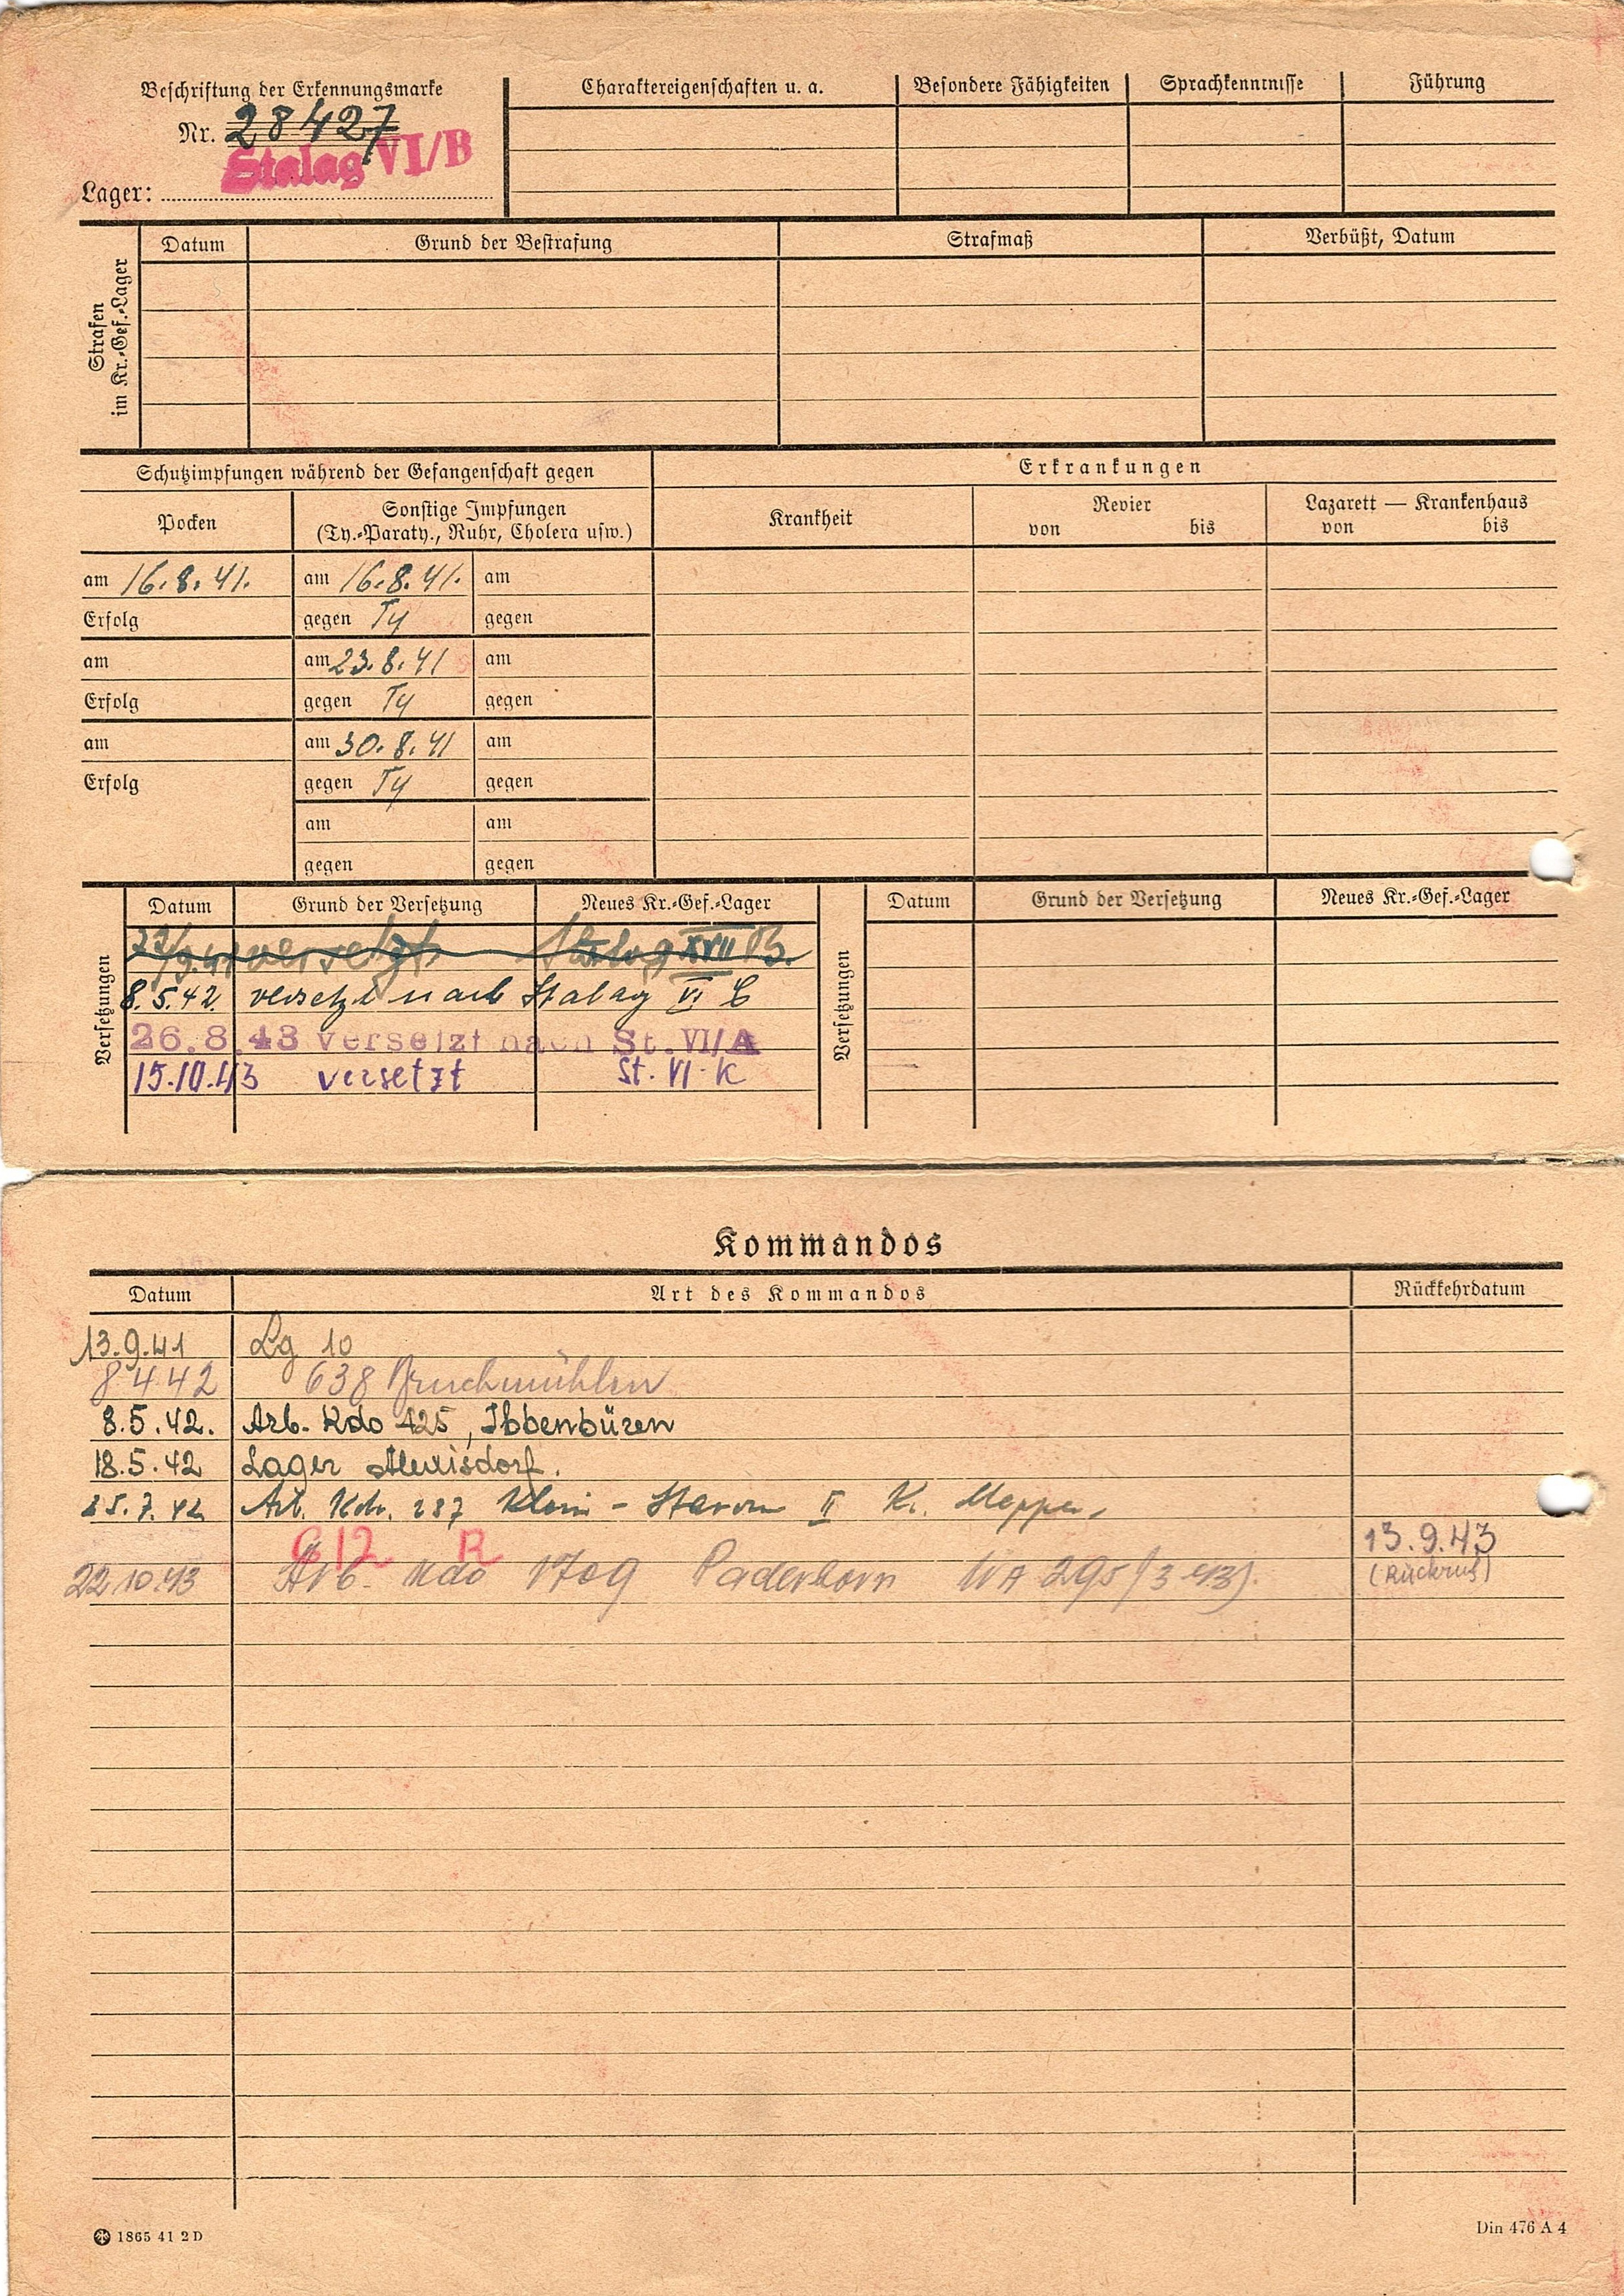 Beschriftung der Erkennungsmarke
Nr. 28427
Stalag VI/B
Lager:
Charaktereigenschaften u. a.
Besondere Fähigkeiten
Sprachkenntnisse
Führung
Strafen im Kr.-Gef.-Lager
Datum
Grund der Bestrafung
Strafmaß
Verbüßt, Datum
Schutzimpfungen während der Gefangenschaft gegen
Erkrankungen
Pocken
Sonstige Impfungen
(Ty.-Paraty., Ruhr, Cholera usw.)
Krankheit
Revier
von bis
Lazarett — Krankenhaus
von bis
am 16.8.41. am 16.8.41. am
Erfolg gegen Ty gegen
am am 23.8.41 am
Erfolg gegen Ty gegen
am am 30.8.41 am
Erfolg gegen Ty gegen
am am
gegen gegen
Versetzungen
Datum Grund der Versetzung Neues Kr.-Gef.-Lager
versetzt Stalag XVII B.
8.5.42 versetzt nach Stalag VI C
26.8.43 versetzt nach St. VI/A
15.10.43 versetzt St. VI K
Versetzungen
Datum Grund der Versetzung Neues Kr.-Gef.-Lager
Kommandos
Datum Art des Kommandos Rückkehrdatum
13.9.41 Lg 10
8 4 42 638 Bruchmühlen
8.5.42. Arb. Kdo 425, Ibbenbüren
18.5.42 Lager Alexisdorf.
25.7.42 Arb. Kdo. 287 Klein - II Kr. Meppen
G 12 R 13.9.43
22.10.43 Arb. Kdo 1709 Paderborn (Rückruf)
1865 41 2 D
Din 476 A 4